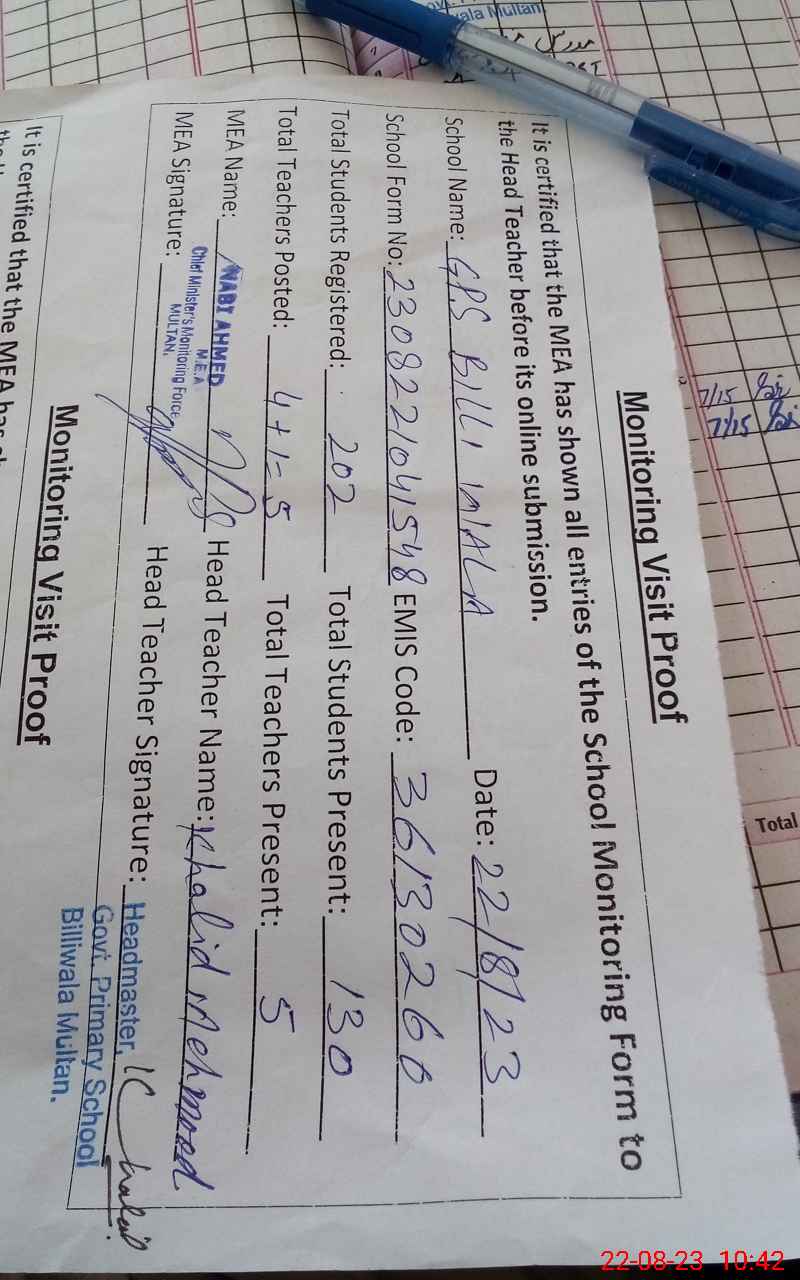 Monitoring Visit Proof
It is certified that the MEA has shown all entries of the School Monitoring Form to
the Head Teacher before its online submission.
School Name: GPS BILLI WALA Date: 22/8/23
School Form No: 2308221041548 EMIS Code: 36130260
Total Students Registered: 202 Total Students Present: 130
Total Teachers Posted: 4+1=5 Total Teachers Present: 5
MEA Name: NABI AHMED Head Teacher Name: Khalid Mehmood
M.E.A
Chief Minister's Monitoring Force
MULTAN.
MEA Signature: Head Teacher Signature: Headmaster, Khalid
Govt. Primary School
Billiwala Multan.
Monitoring Visit Proof
It is certified that the MEA has
Total
7/15
7/15
wala Multan
22-08-23 10:42